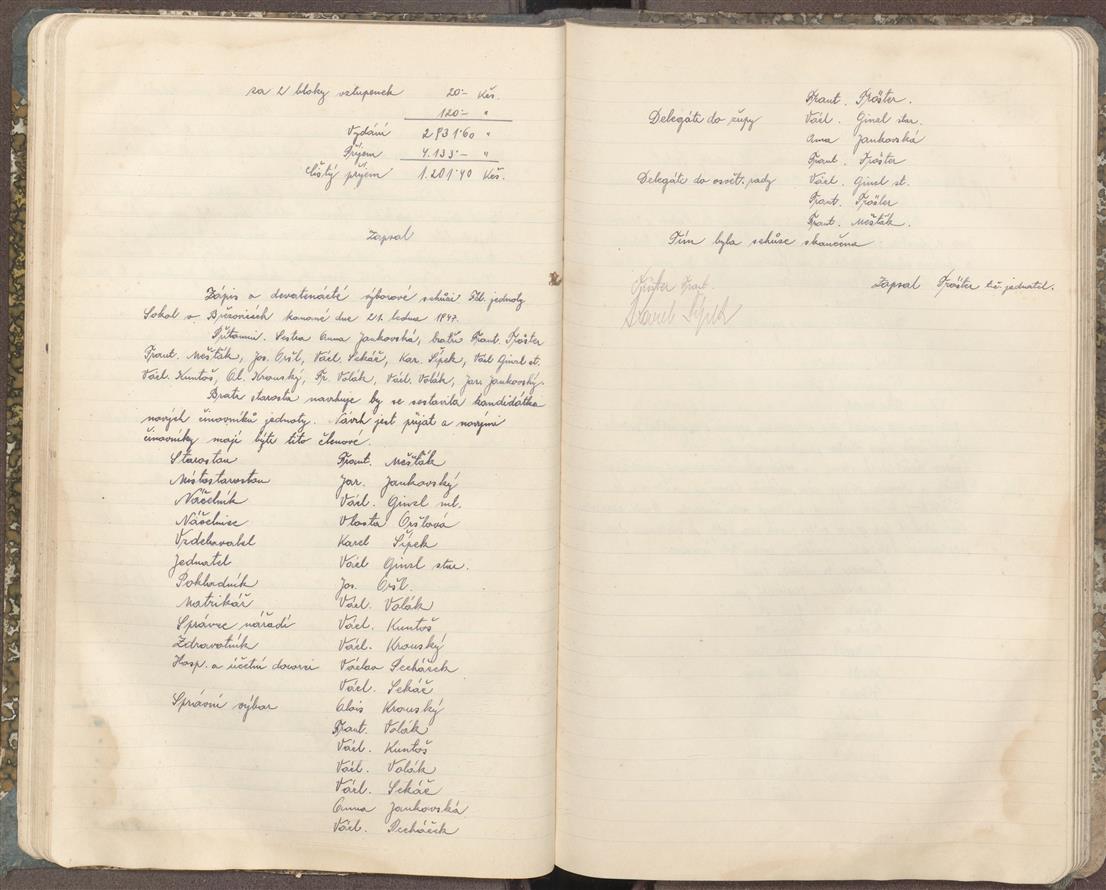 za 2 bloky vstupenek 20·– Kčs.
120·– "
Vydání 2931·60 "
Příjem 4.133·– "
čistý příjem 1.201·40 Kčs.
Zapsal
Zápis o devatenácté výborové schůzi Těl. jednoty
Sokol v Březovicích konané dne 21. ledna 1947.
Přítomni. Sestra Anna Jankovská, bratři Frant. Tröster
Frant. Mešták, Jos. Oršl, Václ. Sekáč, Kar. Šípek, Václ Ginzl st.
Václ. Kuntoš, Al. Krouský, Fr. Volák, Václ. Volák, Jar. Jankovský.
Bratr starosta navrhuje by se sestavila kandidátka
nových činovníků jednoty. Návrh jest přijat a novými
činovníky mají býti tito členové.
Starostou Frant. Mešták
Místostarostou Jar. Jankovský
Náčelník Václ. Ginzl ml.
Náčelnice Vlasta Oršlová
Vzdělavatel Karel Šípek
Jednatel Václ Ginzl star.
Pokladník Jos. Oršl.
Matrikář Václ. Volák
Správce nářadí Václ. Kuntoš
Zdravotník Václ. Krouský
Hosp. a účetní dozorci Václav Pecháček
Václ. Sekáč
Správní výbor Alois Krouský
Frant. Volák
Václ. Kuntoš
Václ. Volák
Václ. Sekáč
Anna Jankovská
Václ. Pecháček
Frant. Tröster.
Delegáti do župy Václ. Ginzl star.
Anna Jankovská
Frant. Tröster
Delegáti do osvět. rady Václ. Ginzl st.
Frant. Tröster
Frant. Mešták.
Tím byla schůze skončena
Zapsal Tröster t.č. jednatel.
Tröster Frant.
Karel Šípek